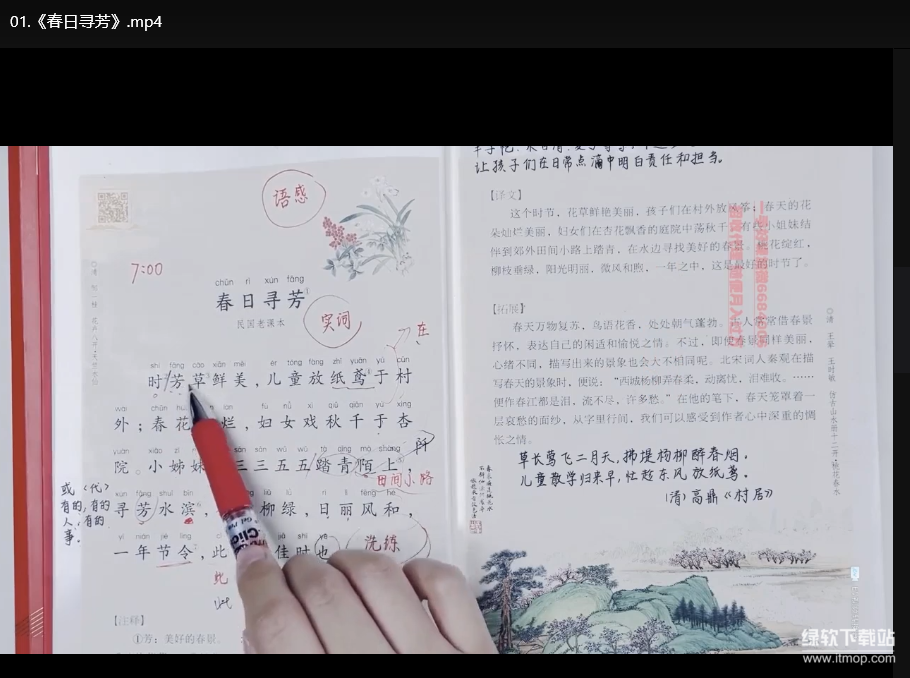 01.《春日寻芳》.mp4
让孩子们在日常点滴中明白责任和担当。
语感
7:00
chūn rì xún fāng
春日寻芳
民国老课本
实词
在
时芳草鲜美，儿童放纸鸢于村
外；春花烂，妇女戏秋千于杏
院。小姊妹三三五五踏青陌上，
所
田间小路
寻芳水滨，柳绿，日丽风和，
一年节令，此佳时也
洗练
或（代）
有的，有的
人，有的
事。
此
【注释】
①芳：美好的春景。
【译文】
这个时节，花草鲜艳美丽，孩子们在村外放风筝；春天的花
朵灿烂美丽，妇女们在杏花飘香的庭院中荡秋千；有些小姐妹结
伴到郊外田间小路上踏青，在水边寻找美好的春景。桃花绽红，
柳枝垂绿，阳光明丽，微风和煦，一年之中，这是最好的时节了。
【拓展】
春天万物复苏，鸟语花香，处处朝气蓬勃。古人常常借春景
抒怀，表达自己的闲适和愉悦之情。不过，即使春景同样美丽，
心绪不同，描写出来的景象也会大不相同呢。北宋词人秦观在描
写春天的景象时，便说：“西城杨柳弄春柔，动离忧，泪难收。……
便作春江都是泪，流不尽，许多愁。”在他的笔下，春天笼罩着一
层哀愁的面纱，从字里行间，我们可以感受到作者心中深重的惆
怅之情。
草长莺飞二月天，拂堤杨柳醉春烟。
儿童散学归来早，忙趁东风放纸鸢。
（清）高鼎《村居》
绿软下载站
www.itmop.com